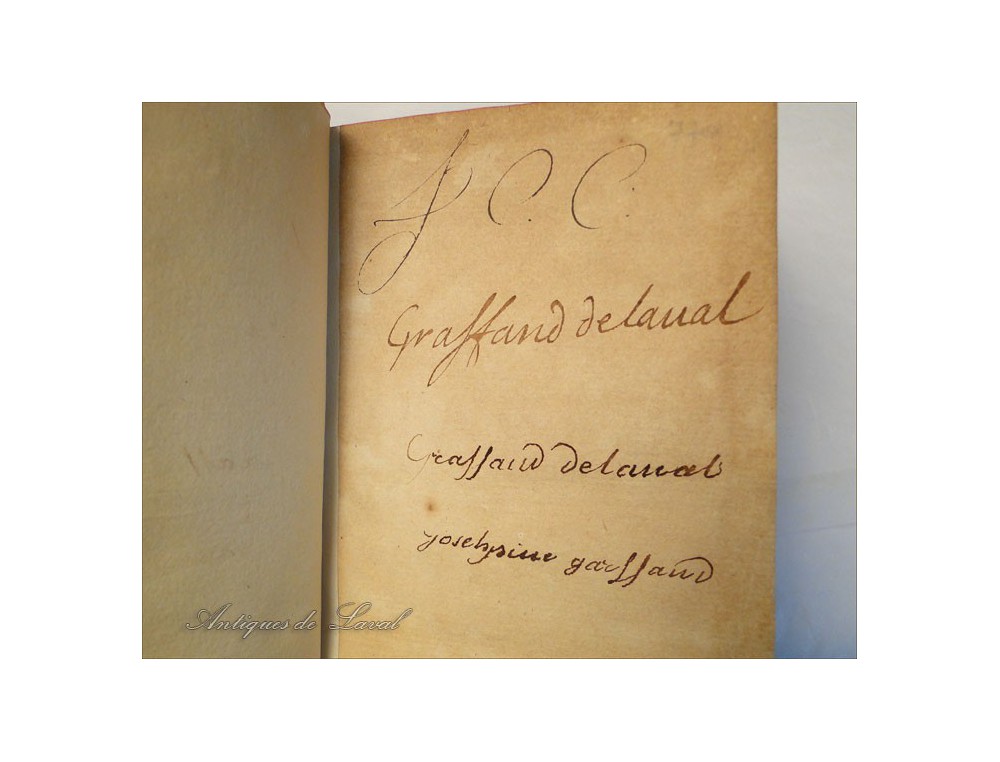 J C. C.
Graffand delaual
Graffand delaual
Josehpine garffand
Antiques de Laval